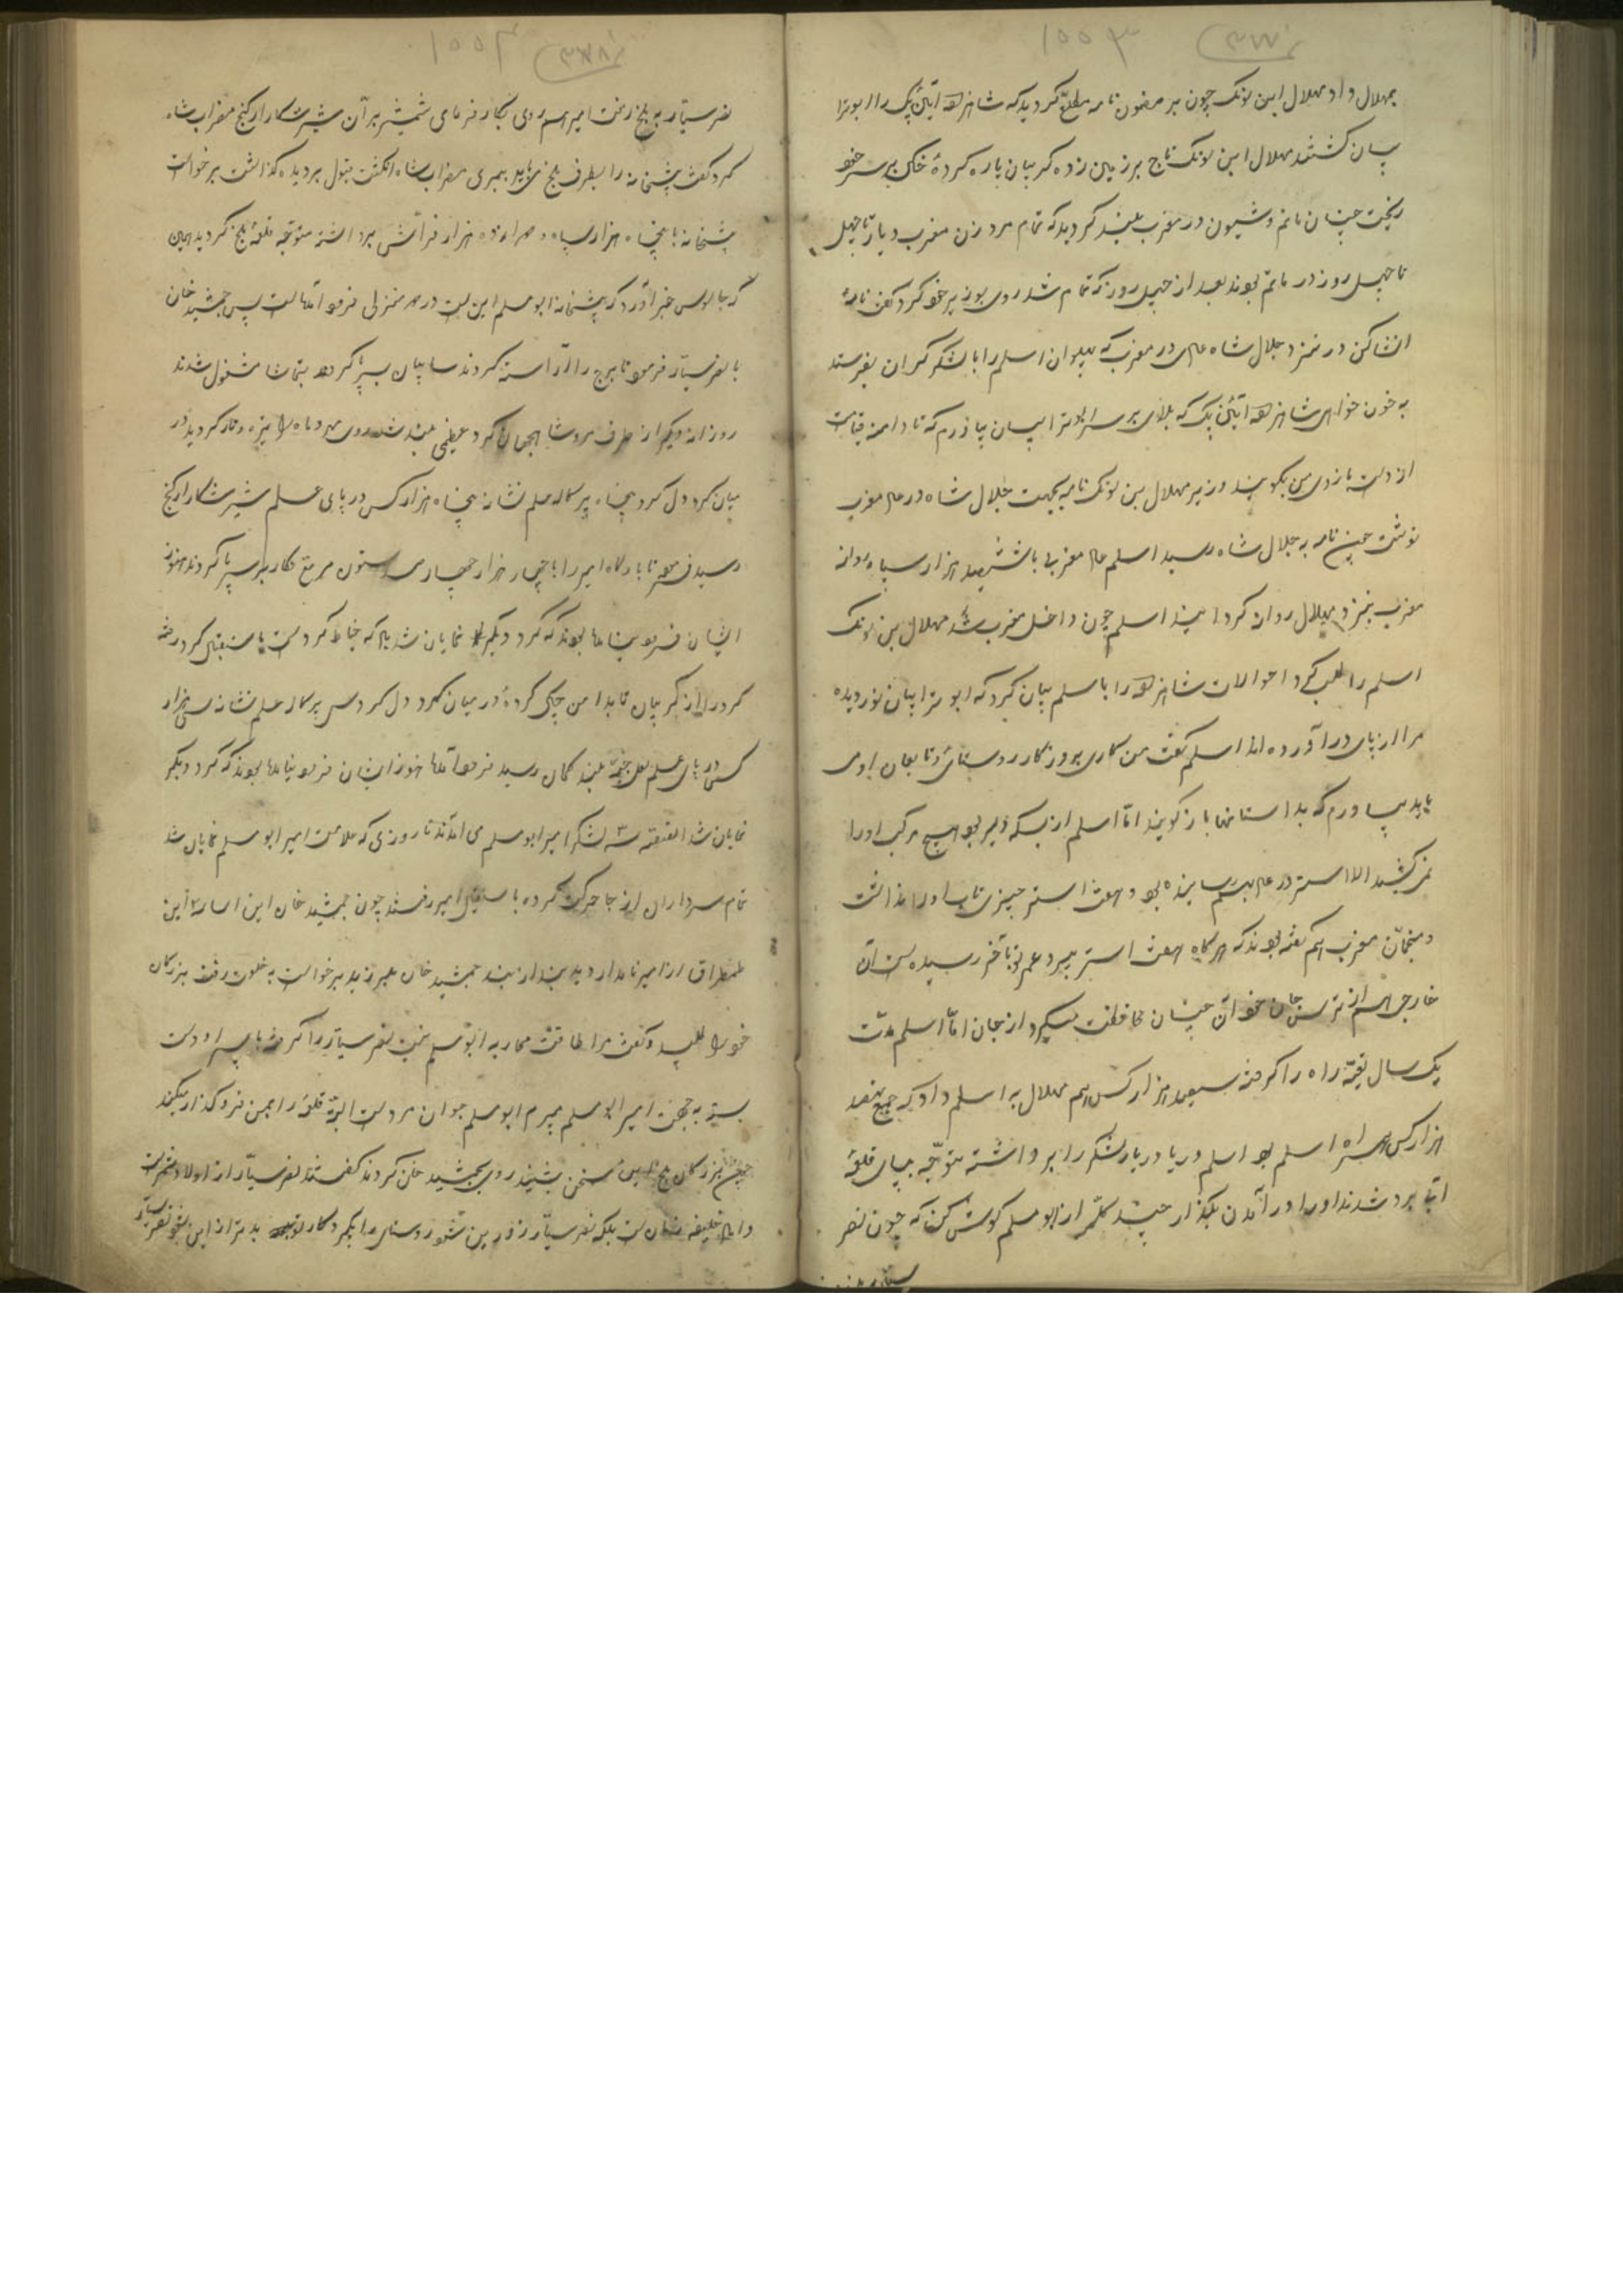 بمهلال داد مهلال ابن لونک چون بر مضمون نامه مطلع گردید که شاهزاده را ابوترا
بیان کشتند مهلال ابن لونک تاج بر زمین زده گریبان پاره کرده خاک بر سر خود
ریخت چنان ماتم و شیون در مغرب بلند گردید که تمام مرد و زن مغرب دیار تا چهل
تا چهل روز در ماتم بودند بعد از چهل روز که تمام شد روی بوزیر خود کرد گفت نامه
انشا کن در نزد جلال شاه در مغرب که پهلوان اسلم را با لشکر گران بفرستد
به خون خواهی شاهزاده که بلای بر سر ابوترابیان بیاورم که تا دامن قیامت
از دست بازوی من بگویند وزیر مهلال بن لونک نامه بجهت جلال شاه در مغرب
نوشت چون نامه به جلال شاه رسید اسلم مغربی با ششصد هزار سپاه روانه
مغرب بنزد مهلال روان گردانید اسلم چون داخل مغرب شد مهلال بن لونک
اسلم را طلب کرد احوالات شاهزاده را با سلم بیان کرد که ابوترابیان نور دیده
مرا از پای در آورده اند اسلم گفت من کاری بروزگار روستائی و تابعان او می
باید بیاورم که بداستانها باز گویند اما اسلم از بسکه بود هیچ مرکب او را
نمی کشید الا استر در بهم رسانیده بود و هفت استر
و منجمان مغرب هم گفته بودند که هرگاه هفت استر بمیرد عمر تو بآخر رسیده است آن
خارجی از ترس جان خود آن چنان محافظت میکرد از جان اما اسلم مدت
یک سال راه را گرفته سیصد هزار کس هم مهلال به اسلم داد که جمیع نهصد
هزار کس همراه اسلم بود اسلم دریا دریا لشکر را برداشته متوجه پای قلعه
شدند او را در آمدن بگذار چند کلمه از ابومسلم گوش کن که چون نصر
نصر سیار به بلخ رفت امیر روی بکار فرمای شمشیر بران شیر شکار ارکنج مضراب شاه
کرد گفت پیشخانه را بطرف بلخ ببری مضراب شاه انگشت قبول بر دیده گذاشت برخواست
پیشخانه با پنجاه هزار سپاه و همراه ده هزار فراش برداشته متوجه قلعه بلخ گردید
که جاسوس خبر آورد که پیشخانه ابومسلم این است در هر منزلی فرود آمده است پس جمشید خان
با نصر سیار فرمود تا برج را آراسته کردند سایبان بر پا کرده بتماشا مشغول شدند
روزانه دیگر از طرف مرو شاهجهان گرد عظیمی بلند شد روی مهر و ماه را تیره و تار گردید در
میان گرد دل گرد پنجاه پرکاله علم نشانه پنجاه هزار کس در پای علم شیر شکار ارکنج
رسید فرمود تا بارگاه امیر را با چهار هزار چهار صد ستون بر پا کردند هنوز
ایشان فرود نیامده بودند که گرد دیگر نمایان شد که خیاط گرد دست باستقبال کرد رخت
گرد را از گریبان تا بدامن چاک کرده در میان گرد دل گرد سی پرکاله علم نشانه سی هزار
کس در پای علم بلند کمان رسید فرود آمد هنوز ایشان فرود نیامده بودند که گرد دیگر
نمایان شد القصه لشکر امیر ابومسلم می آمدند تا روزی که علامت امیر ابومسلم نمایان شد
تمام سرداران از جا حرکت کرده باستقبال امیر رفتند چون جمشید خان این این
طمطراق از امیر نامدار دید بند از بند جمشید خان بلرزید برخواست به خلوت رفت بزرگان
خود را طلبید و گفت مرا طاقت محاربه ابومسلم نیست نصر سیار را گرفته با پسر او دست
بسته به جهت امیر ابومسلم میبرم ابومسلم جوان مرد است البته قلعه را بمن فرو گذار میکند
چون بزرگان بلخ این سخن شنیدند روی بجمشید خان کردند گفتند نصر سیار از اولاد
خلیفه زمان است بلکه نصر سیار